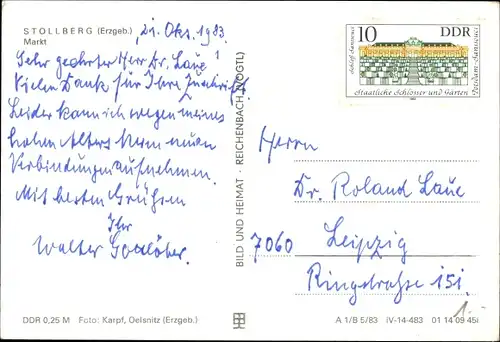 STOLLBERG (Erzgeb.)
Markt
21. Okt. 1983.
Sehr geehrter Herr Dr. Laue!
Vielen Dank für Ihre Zuschrift.
Leider kann ich wegen meines
hohen Alters keine neuen
Verbindungen aufnehmen.
Mit besten Grüßen
Ihr
Walter
BILD UND HEIMAT · REICHENBACH (VOGTL)
10 DDR
Schloß Sanssouci
Potsdam-Sanssouci
Staatliche Schlösser und Gärten
Herrn
Dr. Roland Laue
7060 Leipzig
Ringstraße 151.
DDR 0,25 M Foto: Karpf, Oelsnitz (Erzgeb.)
A 1/B 5/83 IV-14-483 01 14 09 451
1.-